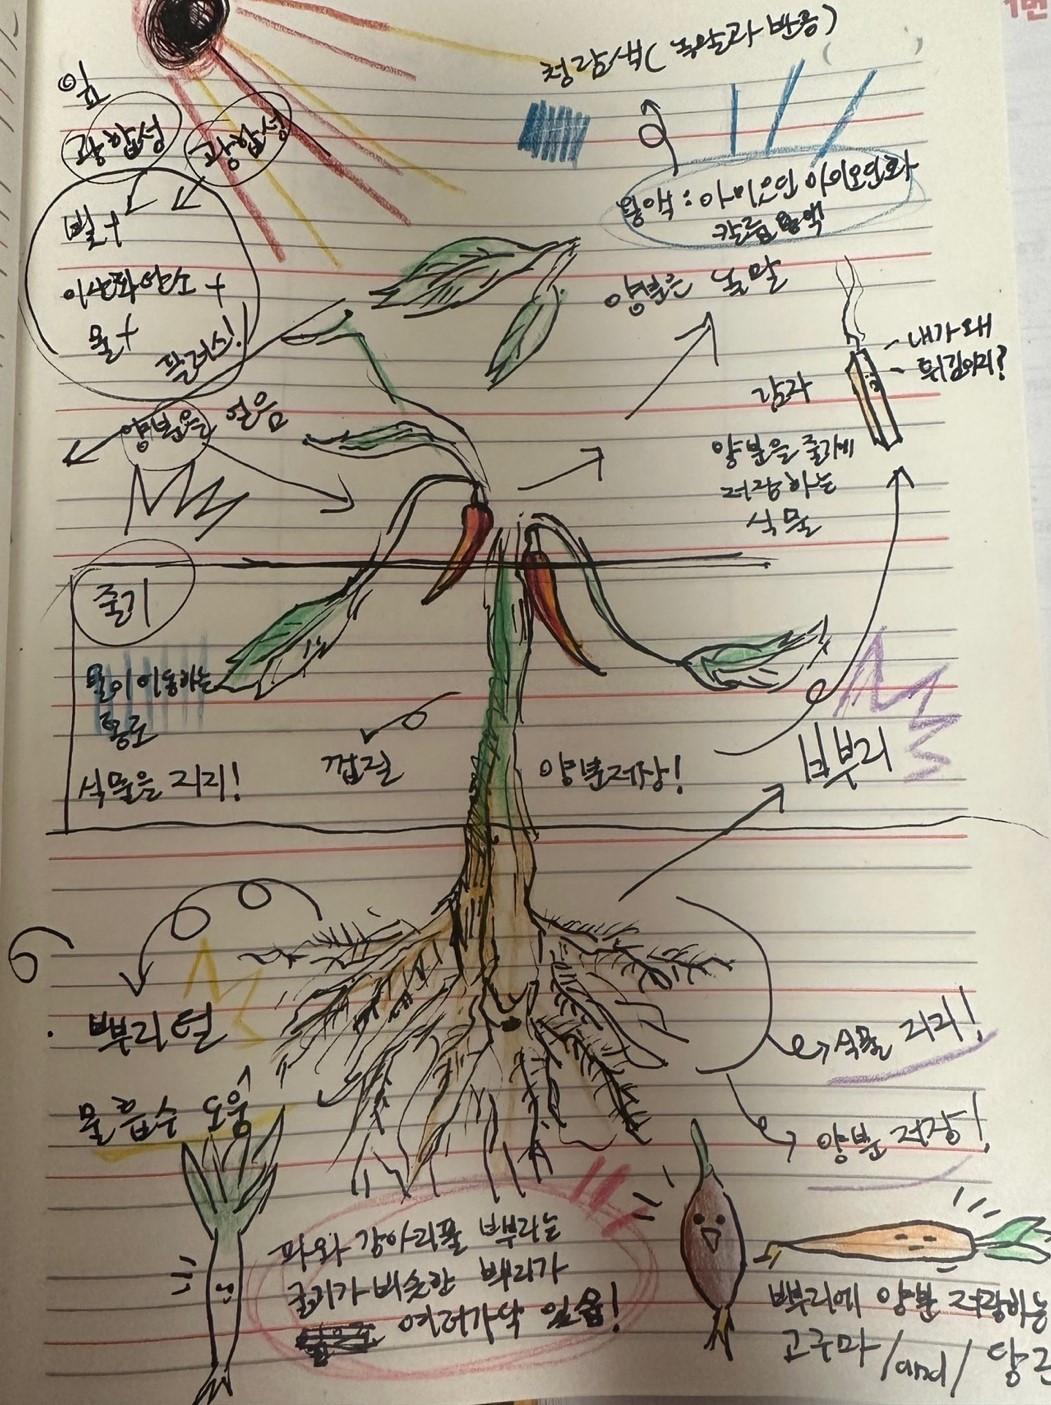 1번
청람색(녹말과 반응)
용액: 아이오딘 아이오딘화
칼륨 용액
◎잎
광합성
광합성
빛+
이산화탄소 +
물+
플러스!
양분을 얻음
양분은 녹말
- 내가 왜
- 튀김이지?
감자
양분을 줄기에
저장하는
식물
줄기
물이 이동하는
통로
식물을 지지!
껍질
양분저장!
뿌리
뿌리털
물 흡수 도움
식물 지지!
양분 저장!
파와 강아리풀 뿌리는
굵기가 비슷한 뿌리가
여러가닥 있음!
뿌리에 양분 저장하는
고구마 /and/ 당근